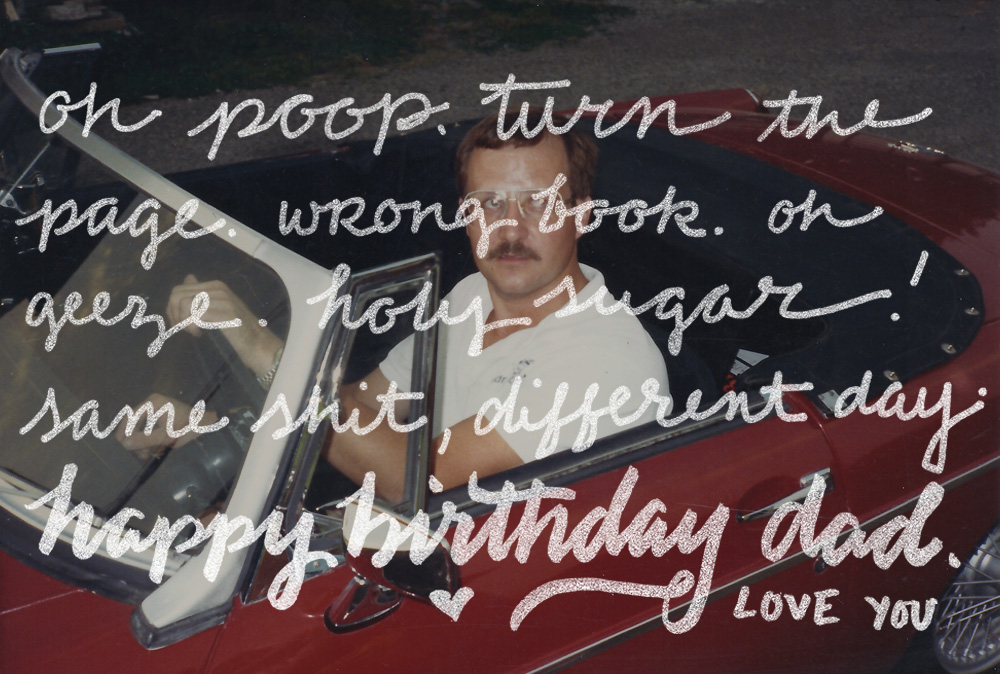 oh poop. turn the
page. wrong book. oh
geeze. holy sugar!
same shit, different day.
happy birthday dad.
LOVE YOU